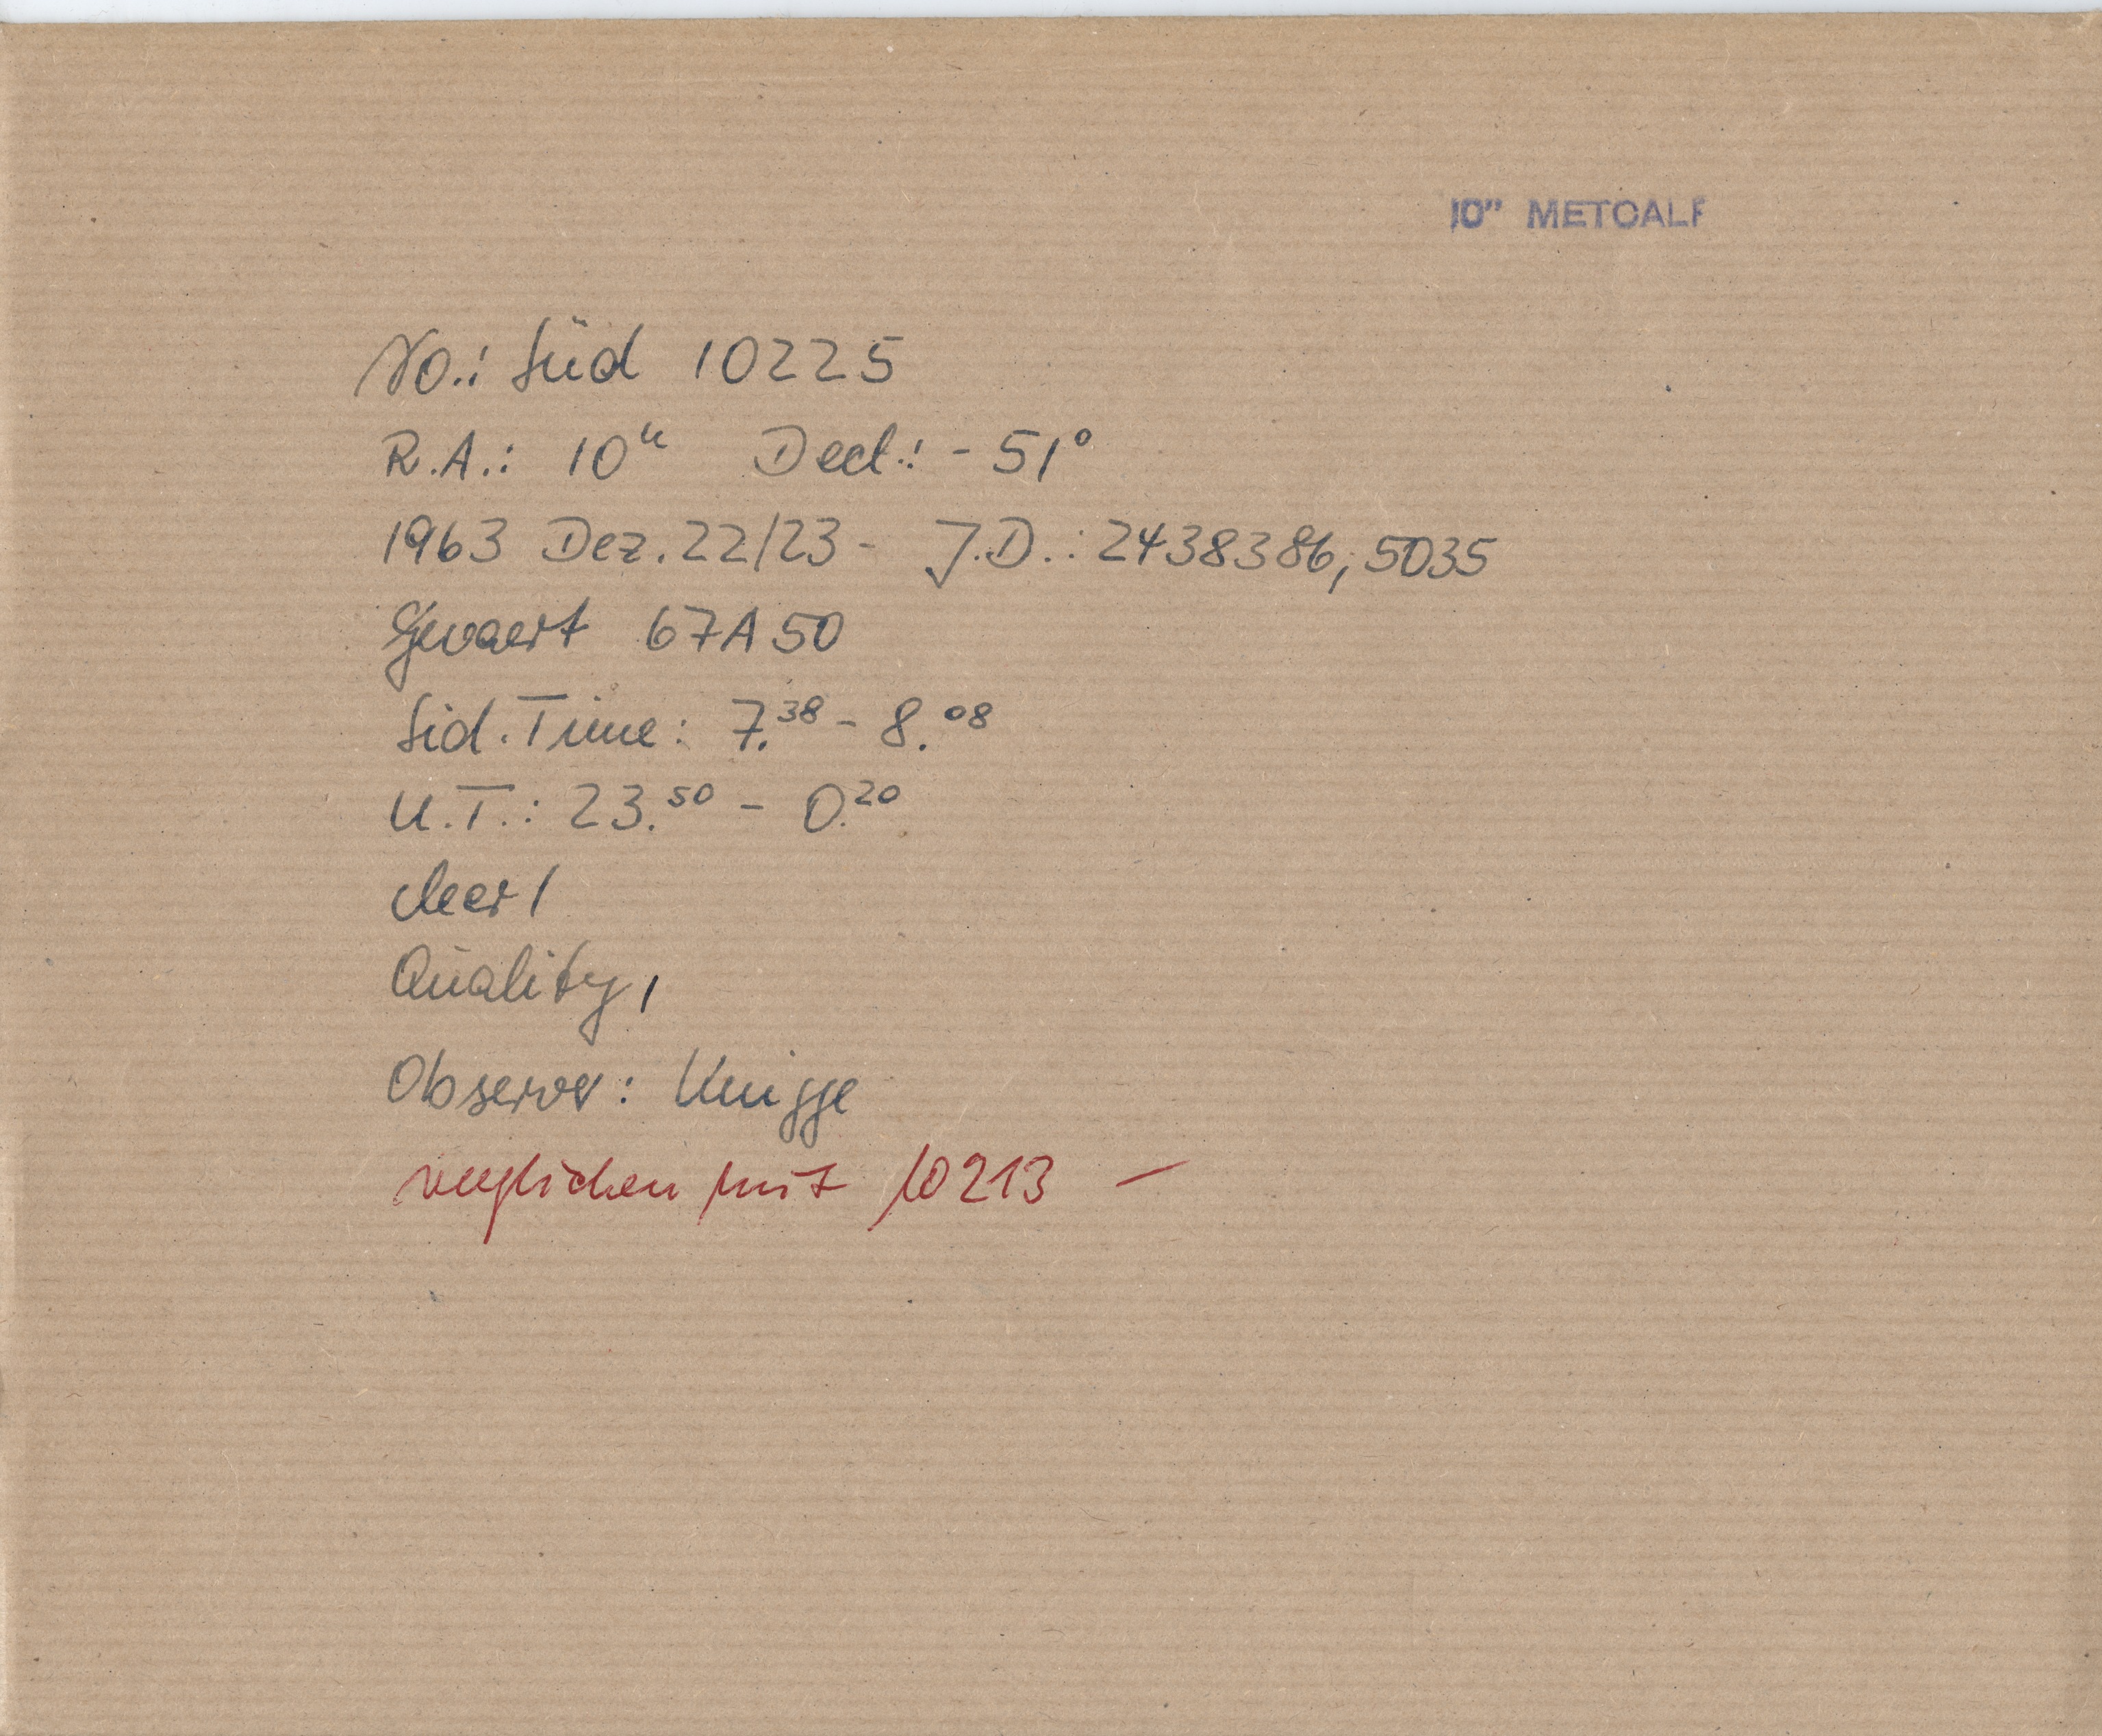 10" METCALF
No.: Süd 10225
R.A.: 10h Decl.: - 51°
1963 Dez. 22/23 - J.D.: 2438386,5035
Gevaert 67A50
Sid. Time: 7.38 - 8.08
U.T.: 23.50 - 0.20
clear 1
Quality 1
Observer: Knigge
verglichen mit 10213 —